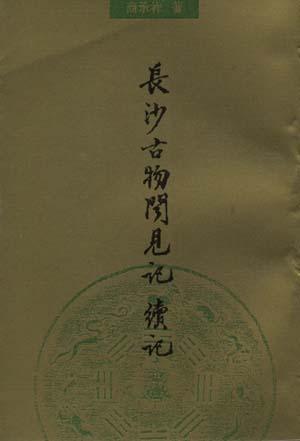 商承祚 著
長沙古物聞見記 續記